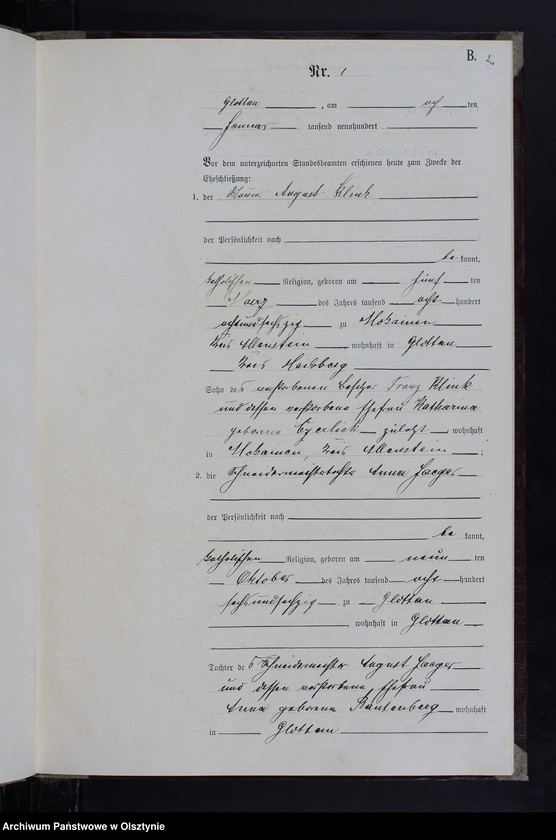 B. 2
Nr. 1
Glottau, am acht ten
Januar tausend neunhundert
Vor dem unterzeichneten Standesbeamten erschienen heute zum Zwecke der
Eheschließung:
1. der August Klink
der Persönlichkeit nach
be kannt,
katholischen Religion, geboren am fünf ten
Maerz des Jahres tausend acht hundert
achtundsechszig zu Mokainen
Kreis Allenstein, wohnhaft in Glottau
Kreis Heilsberg
Sohn des verstorbenen Besitzer Franz Klink
und dessen verstorbene Ehefrau Katharina
geborene zuletzt wohnhaft
in Mokainen, Kreis Allenstein;
2. die Schneidermeistertochter Anna Jaeger
der Persönlichkeit nach
be kannt,
katholischen Religion, geboren am neun ten
Oktober des Jahres tausend acht hundert
sechsundsechzig zu Glottau
, wohnhaft in Glottau
Tochter des Schneidermeister August Jaeger
und dessen verstorbene Ehefrau
Anna geborene Rautenberg wohnhaft
in Glottau
Archiwum Państwowe w Olsztynie